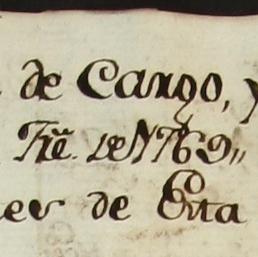 de Cargo, y
Fñê. de 1769,,
de Esta